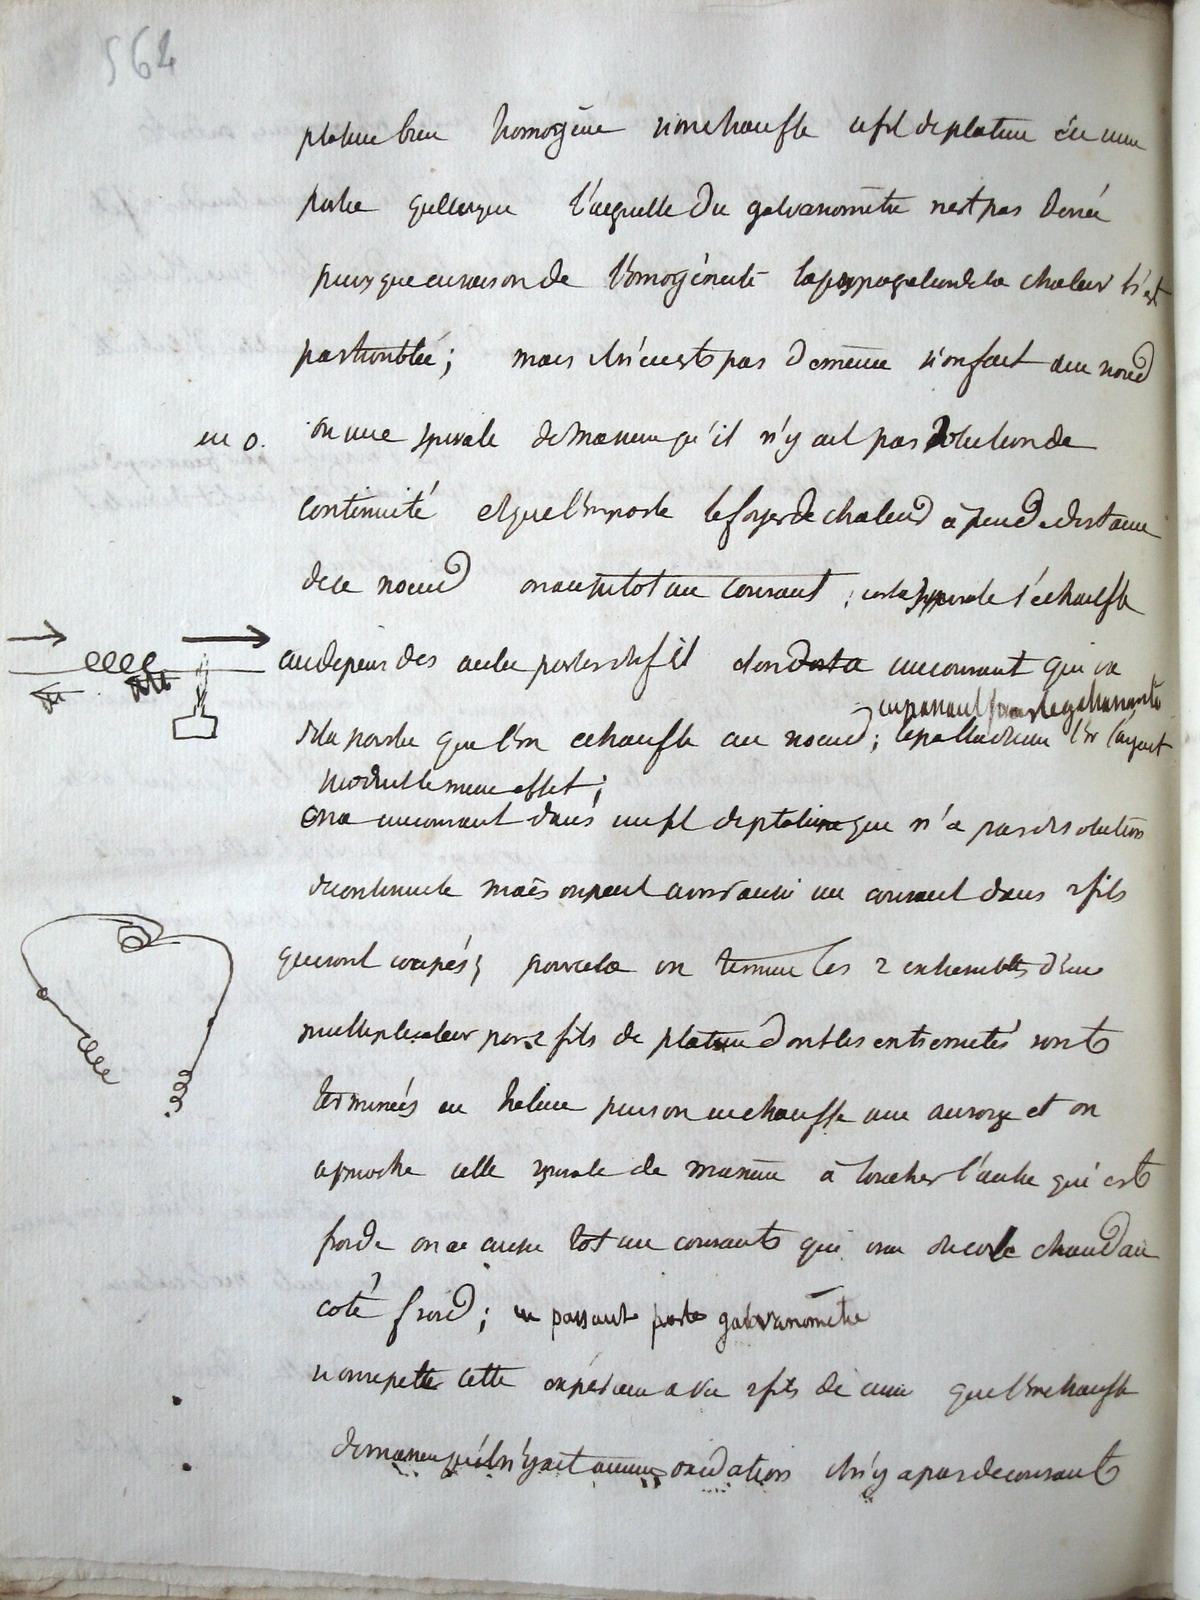 564
platine bien homogène si on chauffe ce fil de platine en une
partie quelleque l'aeguille du galvanomètre n'est pas deviée
puisque en raison de l'omogéneité la propagation de la chaleur n'est
pas troublée; mais il n'en est pas de même si on fait un noeud
en o. ou une spirale de maniere qu'il n'y ait pas solution de
continuité et que l'on porte le foyer de chaleur à peu de distance
de ce noeud on a aussitot un courant ; car la spirale s'échauffe
au depens des autres parties du fil un courant qui va
en passant par le galvanometre
de la partie que l'on echauffe au noeud; le palladium l'or l'argent
produit le meme effet;
on a un courant dans un fil de platine qui n'a pas de solution
de continuité mais on peut avoir aussi un courant dans 2 fils
qui sont coupés; pour cela on termine les 2 extremités d'un
multiplicateur par 2 fils de platine dont les extremités sont
terminés en helice puis on en chauffe une au rouge et on
aproche cette spirale de maniere à toucher l'autre qui est
froide on a aussi tot un courant qui va du coté chaud au
coté froid; en passant par le galvanomètre
si on repette cette expérience avec 2 fils de cuivre que l'on chauffe
de maniere qu'il n'y ait aucune oxidation il n'y a pas de courant